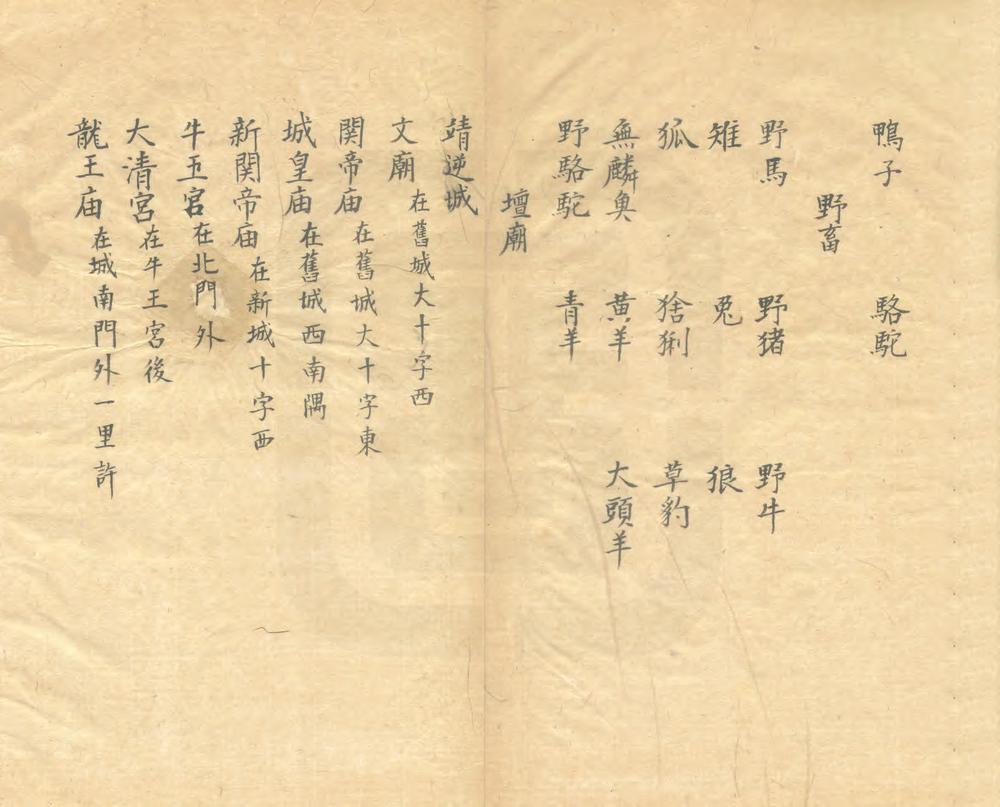 鴨子 駱駝
野畜
野馬 野猪 野牛
雉 兎 狼
狐 猞猁 草豹
無麟魚 黄羊 大頭羊
野駱駝 青羊
壇廟
靖逆城
文廟 在舊城大十字西
関帝庙 在舊城大十字東
城皇庙 在舊城西南隅
新関帝庙 在新城十字西
牛王宮 在北門外
大清宮 在牛王宮後
龍王庙 在城南門外一里許